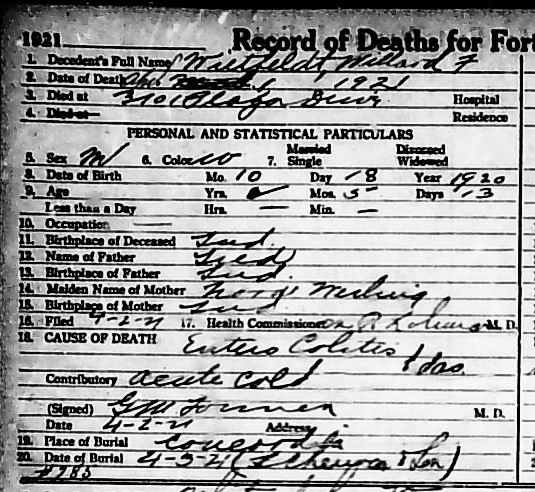 1921 Record of Deaths for Fort
1. Decedent's Full Name Wietfeldt, Willard F
2. Date of Death 1 1921
3. Died at 3101 Drive Hospital
4. Died at Residence
PERSONAL AND STATISTICAL PARTICULARS
5. Sex M 6. Color W 7. Married Single Divorced Widowed
8. Date of Birth Mo. 10 Day 18 Year 1920
9. Age Yrs. Mos. 5 Days 13
Less than a Day Hrs. — Min. —
10. Occupation —
11. Birthplace of Deceased Ind.
12. Name of Father Fred
13. Birthplace of Father Ind.
14. Maiden Name of Mother
15. Birthplace of Mother Ind
16. Filed 4-2-21 17. Health Commissioner M. D.
18. CAUSE OF DEATH Entero Colitis
Contributory Acute Cold
(Signed) G M M. D.
Date 4-2-21 Address
19. Place of Burial Concordia
20. Date of Burial 4-3-21 & Son)
#285